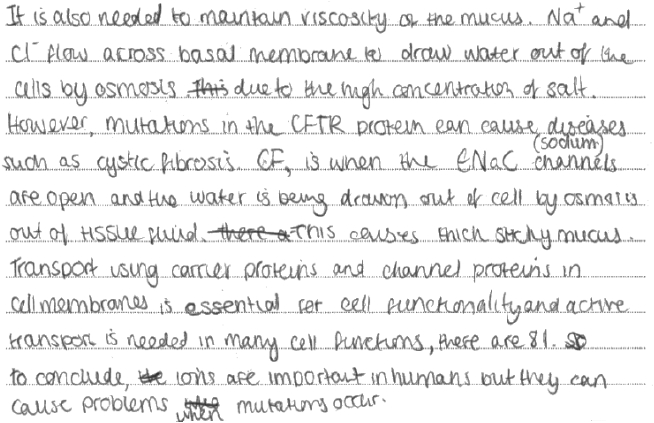 It is also needed to maintain viscosity of the mucus. Na⁺ and
Cl⁻ flow across basal membrane to draw water out of the
cells by osmosis This due to the high concentration of salt.
However, mutations in the CFTR protein can cause diseases
such as cystic fibrosis. CF, is when the ENaC (sodium) channels
are open and the water is being drawn out of cell by osmosis
out of tissue fluid. there a This causes thick sticky mucus.
Transport using carrier proteins and channel proteins in
cell membranes is essential for cell functionality and active
transport is needed in many cell functions, these are 81. So
to conclude, ions are important in humans but they can
cause problems when mutations occur.